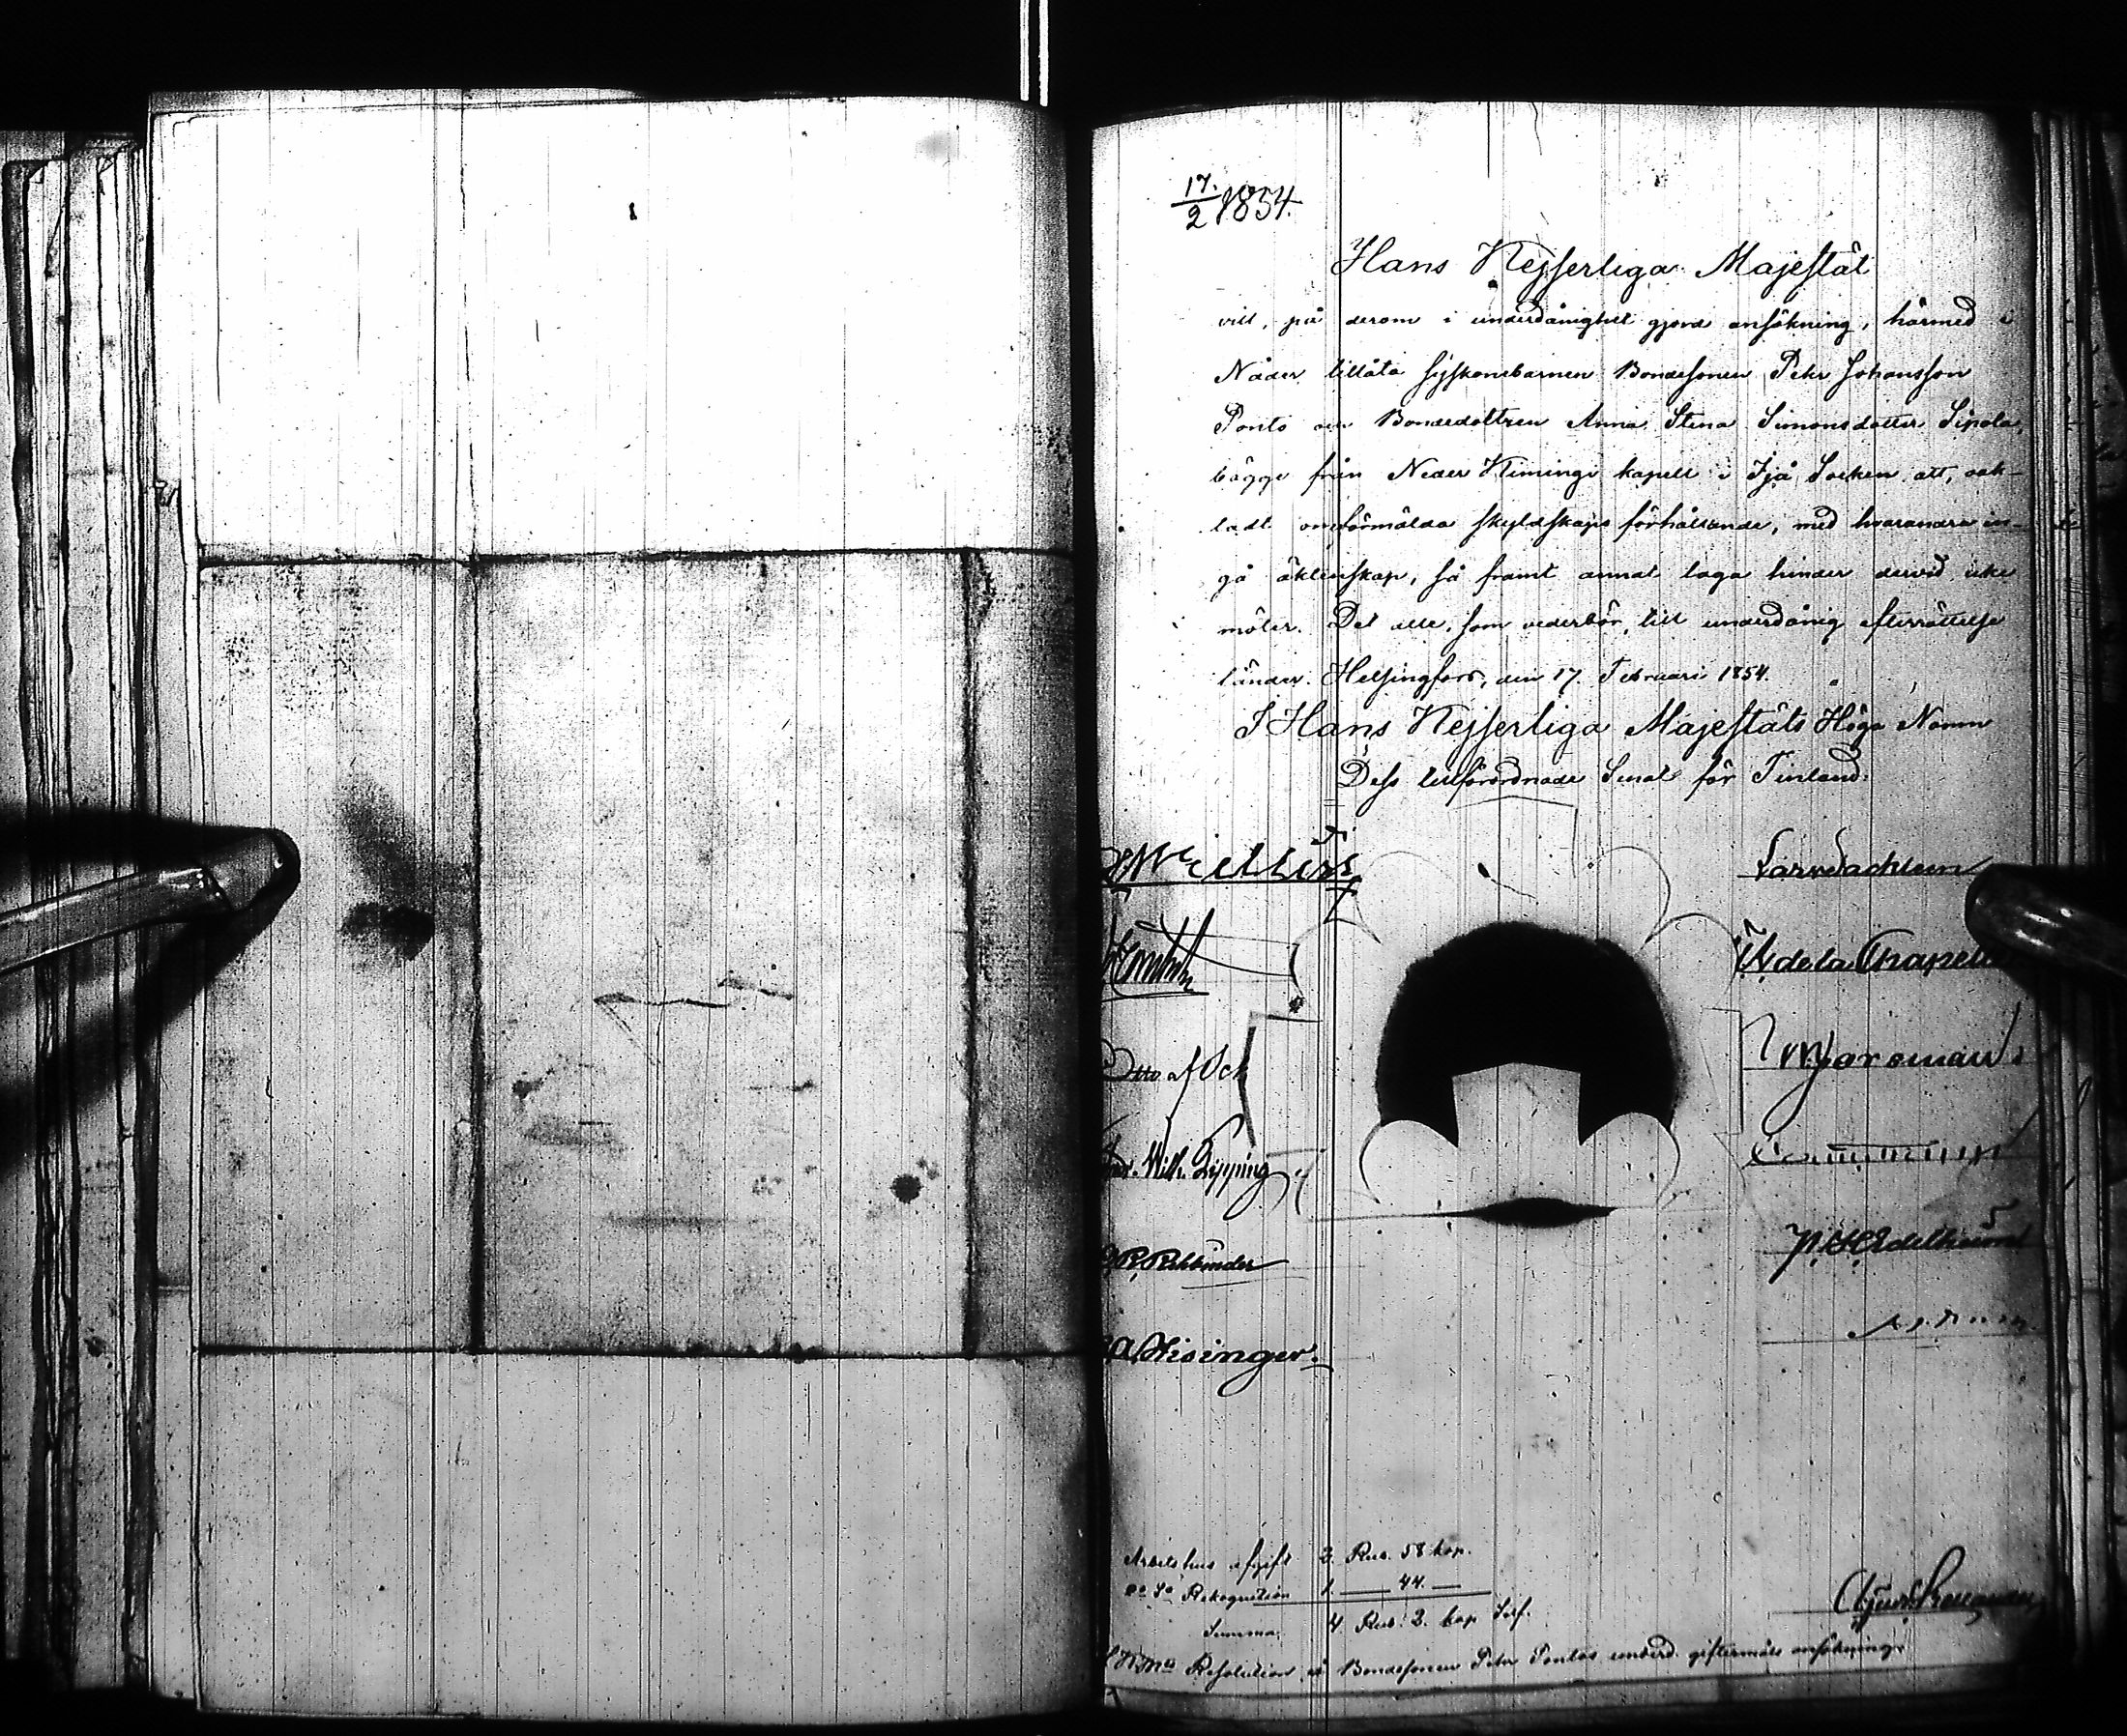 17./2 1854.
Hans Kejserliga Majestät
vill, på derom i underdånighet gjord ansökning, härmed i
Nåder tillåta syskonebarnen Bondesonen Petr Johansson
Ponto och Bondedottren Anna Stina Simonsdotter Sipola,
bägge från Neder Kiminge kapell i Ijå Socken att, oak-
tadt omförmälda skyldskaps förhållande, med hvarandra in-
gå äktenskap, så framt annat laga hinder dervid icke
möter. Det alle, som vederbör, till underdånig efterrättelse
länder. Helsingfors, den 17. Februari 1854.
I Hans Kejserliga Majestäts Höga Namn
Dess tillförordnade Senat för Finland.
Lars Sackleen
de la Chapelle
Otto af Sch
Wilh. Pipping
Rehbinder
Edelheim
Hisinger.
Arbetshus afgift 2. Rub. 58 kop.
Rekognition 1. — 44. —
Summa 4. Rub. 2. kop Silf.
Resolution å Bondesonen Petr Pontos underd. giftermåls ansökning.